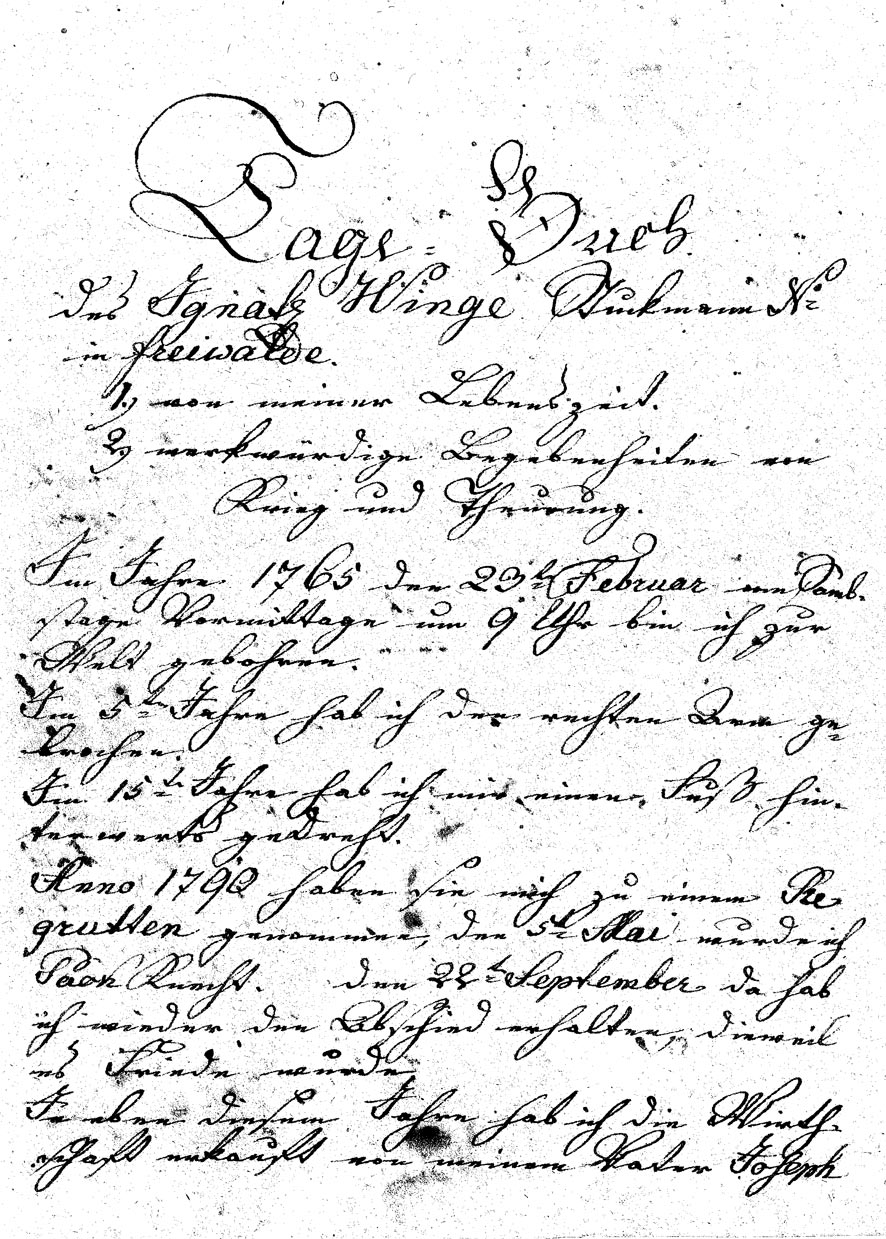 Tage-Buch
des Ignatz Winge Stuckmann No
in Freiwalde.
1.) von meiner Lebenszeit.
2.) merkwürdige Begebenheiten von
Krieg und Theurung.
Im Jahre 1765 den 23t Februar am Sams-
tage Vormittage um 9 Uhr bin ich zur
Welt gebohren.
Im 5ten Jahre hab ich den rechten Arm ge-
brochen.
Im 15t Jahre hab ich mir einen Fuß hin-
terwerts gedreht.
Anno 1790 haben sie mich zu einem Re
grutten genommen, den 5t Mai wurde ich
Pack Knecht. den 22t September da hab
ich wieder den Abschied erhalten, dieweil
es Friede wurde
In eben diesem Jahre hab ich die Wirth-
schaft erkauft von meinem Vater Joseph